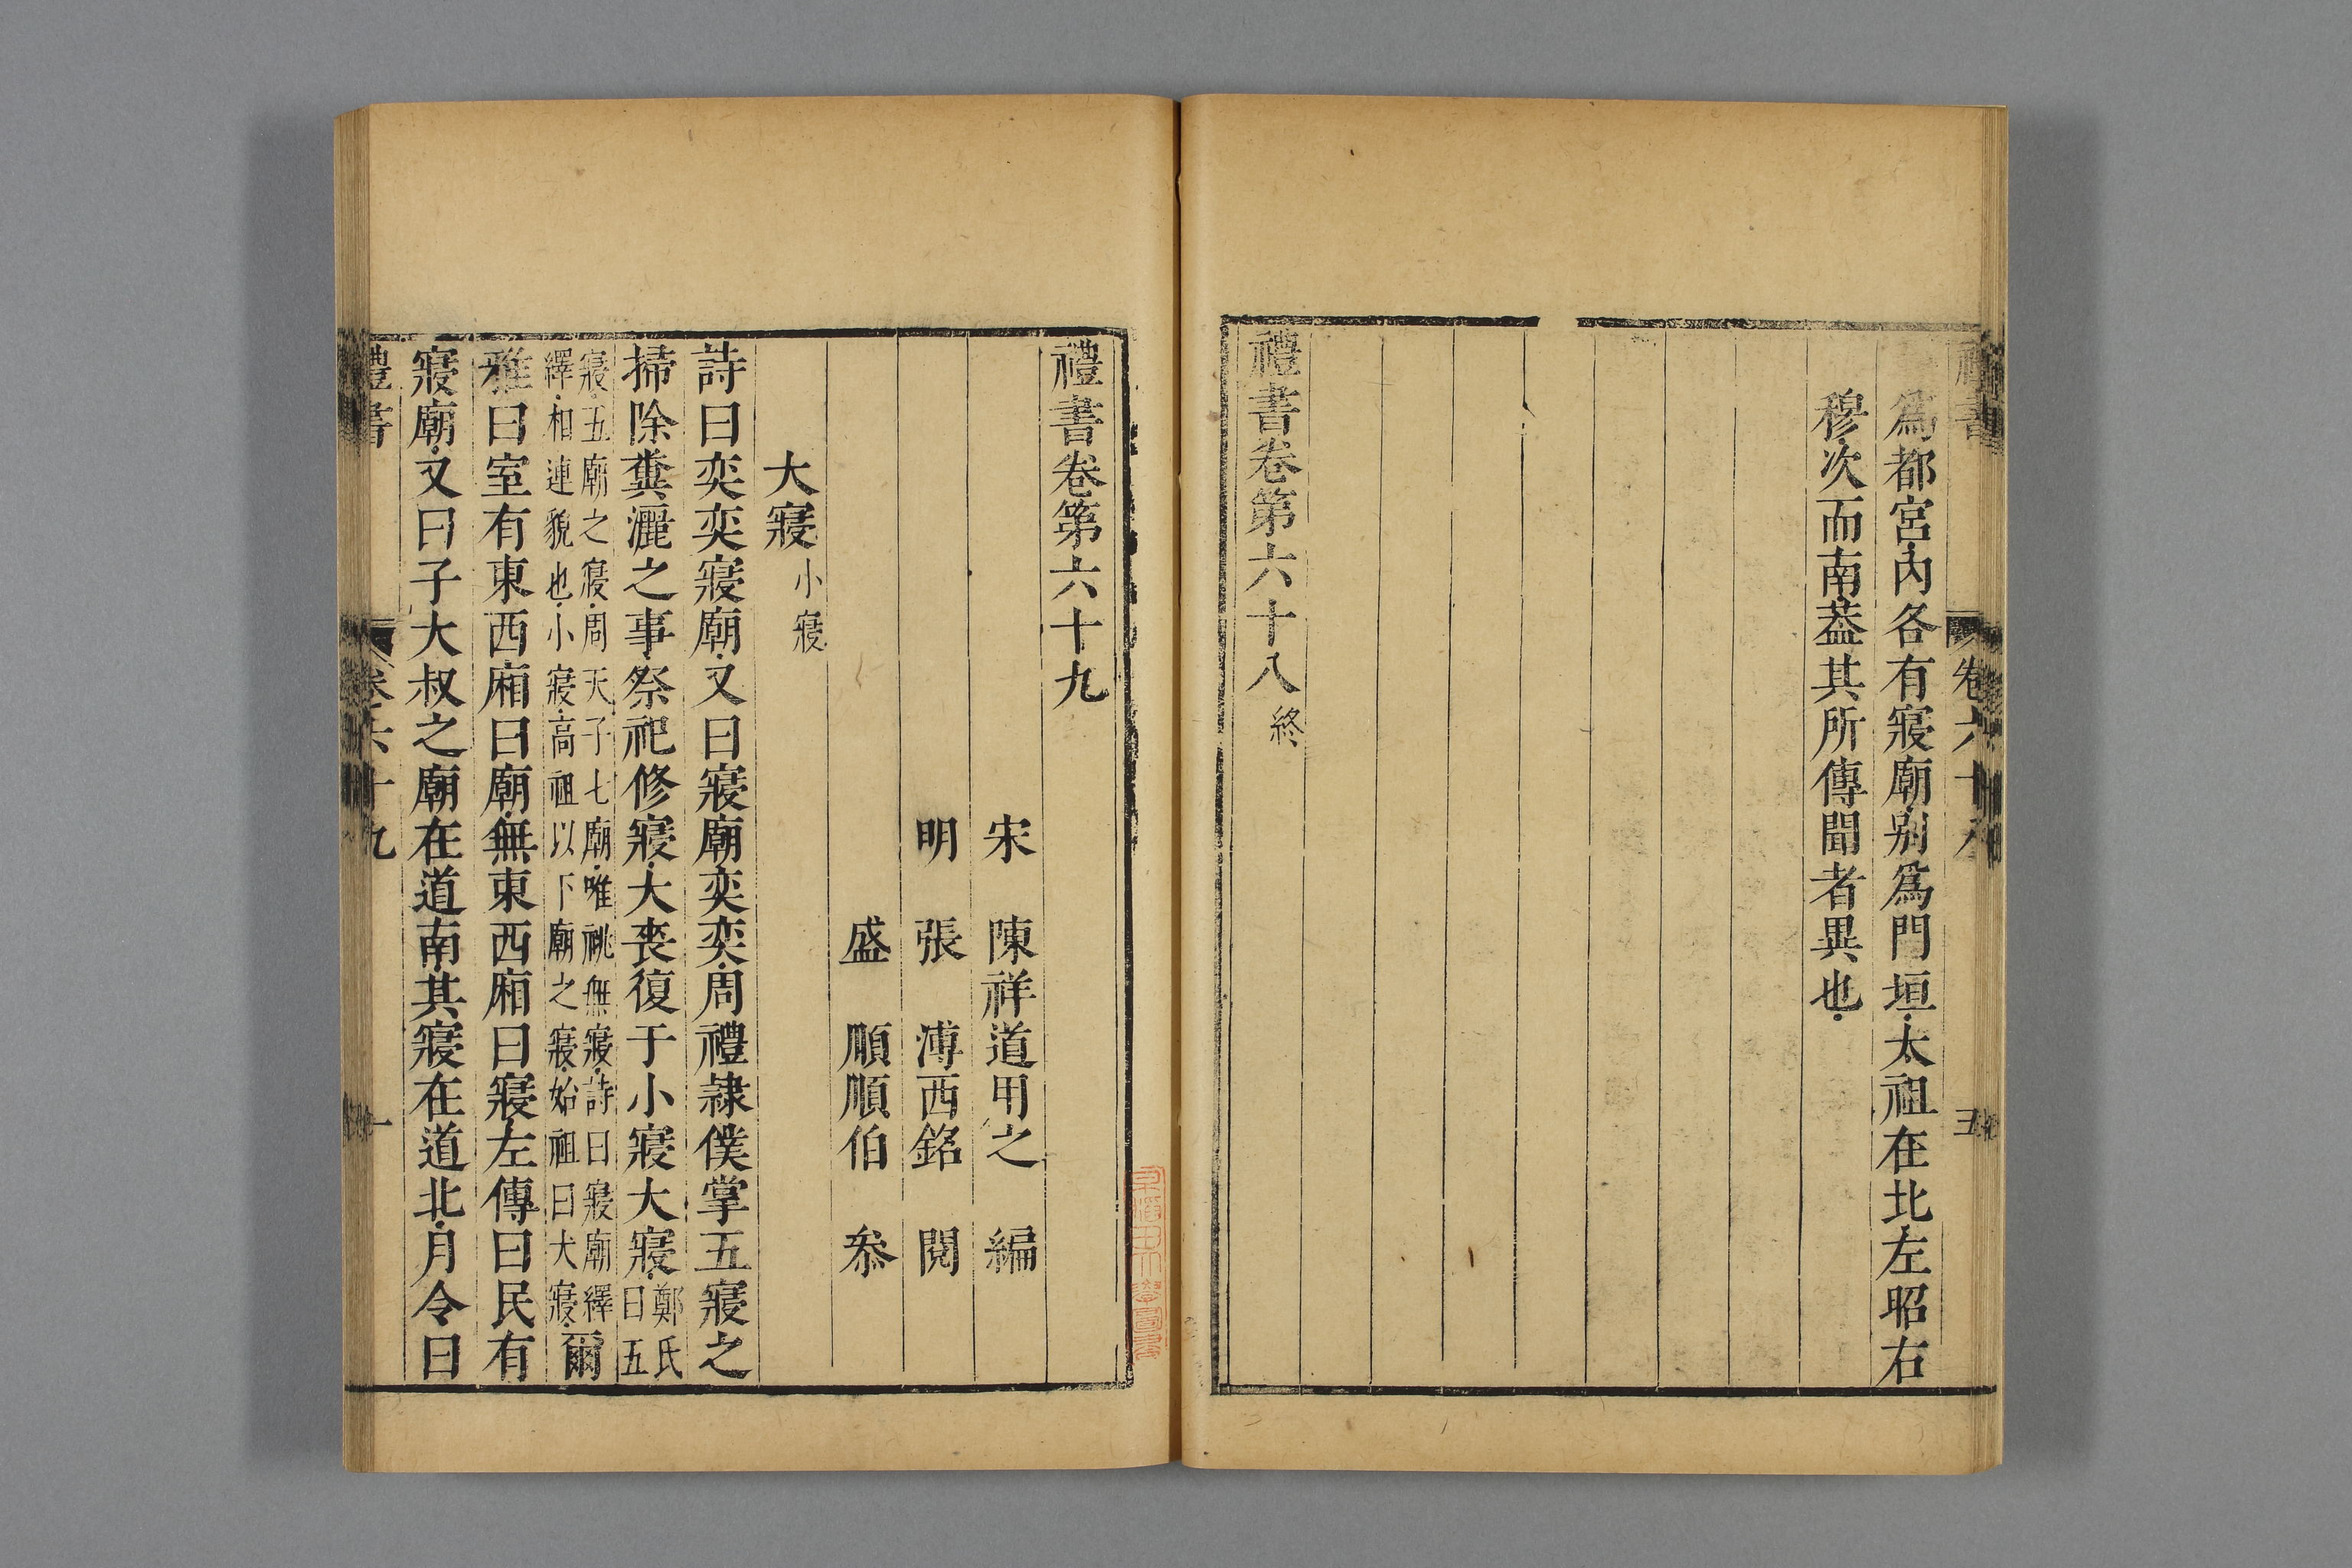 禮書 卷六十八 五
爲都宮内各有寢廟别爲門垣太祖在北左昭右
穆次而南葢其所傳聞者異也
禮書卷第六十八終
禮書卷第六十九
宋 陳祥道用之 編
明 張 溥西銘 閱
盛 順順伯 叅
大寢小寢
詩曰奕奕寢廟又曰寢廟奕奕周禮隷僕掌五寢之
掃除糞灑之事祭祀修寢大喪復于小寢大寢鄭氏曰五
寢五廟之寢周天子七廟唯祧無寢詩曰寢廟繹繹相連貌也小寢高祖以下廟之寢始祖曰大寢爾
雅曰室有東西廂曰廟無東西廂曰寢左傳曰民有
寢廟又曰子大叔之廟在道南其寢在道北月令曰
禮書 卷六十九 一